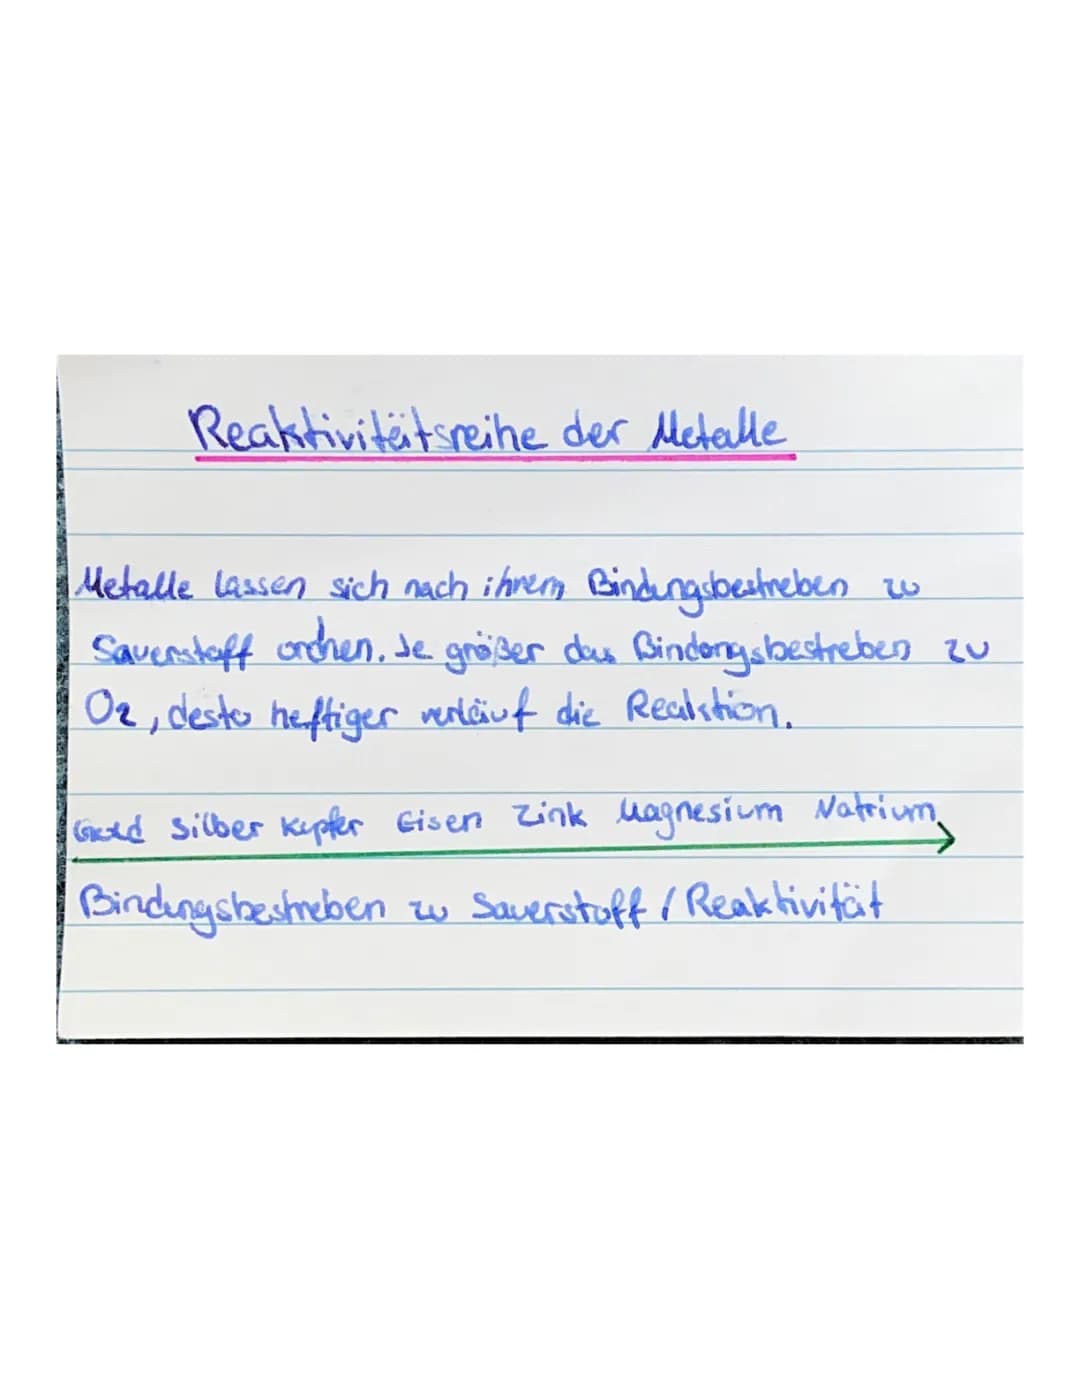 Reaktivitätsreihe der Metalle
Metalle lassen sich nach ihrem Bindungsbestreben zu
Sauerstoff ordnen. Je größer das Bindungsbestreben zu
O2, desto heftiger verläuf die Reaktion.
Gold Silber Kupfer Eisen Zink Magnesium Natrium
Bindungsbestreben zu Sauerstoff / Reaktivität